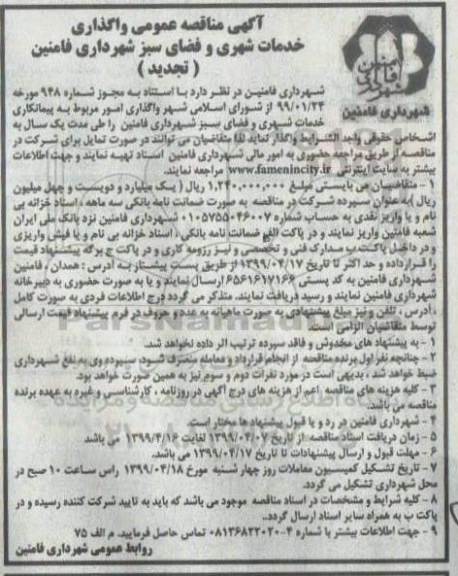 آگهی مناقصه عمومی واگذاری
خدمات شهری و فضای سبز شهرداری فامنین
( تجدید )
شهرداری فامنین
شهرداری فامنین در نظر دارد با استناد به مجوز شماره ۹۴۸ مورخه
۹۹/۰۱/۲۴ از شورای اسلامی شهر واگذاری امور مربوط به پیمانکاری
خدمات شهری و فضای سبز شهرداری فامنین را طی مدت یک سال به
اشخاص حقوقی واجد الشرایط واگذار نماید لذا متقاضیان می توانند در صورت تمایل برای شرکت در
مناقصه از طریق مراجعه حضوری به امور مالی شهرداری فامنین اسناد تهیه نمایند و جهت اطلاعات
بیشتر به سایت اینترنتی www.famenincity.ir مراجعه نمایند.
۱ - متقاضیان می بایستی مبلغ ۱,۲۴۰,۰۰۰,۰۰۰ ریال ( یک میلیارد و دویست و چهل میلیون
ریال ) به عنوان سپرده شرکت در مناقصه به صورت ضمانت نامه بانکی سه ماهه ، اسناد خزانه بی
نام و یا واریز نقدی به حساب شماره ۰۱۰۵۷۵۵۰۴۶۰۰۷ شهرداری فامنین نزد بانک ملی ایران
شعبه فامنین واریز نمایند و در پاکت الف ضمانت نامه بانکی ، اسناد خزانه بی نام و یا فیش واریزی
و در داخل پاکت ب مدارک فنی و تخصصی و نیز رزومه کاری و در پاکت ج برگه پیشنهاد قیمت
را قرار داده و حد اکثر تا تاریخ ۱۳۹۹/۰۴/۱۷ از طریق پست پیشتاز به آدرس : همدان ، فامنین
شهرداری فامنین به کد پستی ۶۵۶۱۶۱۷۱۶۶ ارسال نمایند و یا به صورت حضوری به دبیرخانه
شهرداری فامنین نمایند و رسید دریافت نمایند. متذکر می گردد درج اطلاعات فردی به صورت کامل
، آدرس ، تلفن و نیز مبلغ پیشنهادی به صورت ماهیانه به عدد و حروف در فرم پیشنهاد قیمت ارسالی
توسط متقاضیان الزامی است.
۱ - به پیشنهاد های مخدوش و فاقد سپرده ترتیب اثر داده نخواهد شد.
۲ - چنانچه نفر اول برنده مناقصه از انجام قرارداد و معامله منصرف شود، سپرده وی به نفع شهرداری
ضبط خواهد شد ، بدیهی است در مورد نفرات دوم و سوم نیز به همین صورت خواهد بود.
۳ - کلیه هزینه های مناقصه اعم از هزینه های درج آگهی در روزنامه ، کارشناسی و غیره به عهده برنده
مناقصه می باشد.
۴ - شهرداری فامنین در رد و یا قبول پیشنهاد ها مختار است.
۵ - زمان دریافت اسناد مناقصه از تاریخ ۱۳۹۹/۰۴/۰۷ لغایت ۱۳۹۹/۴/۱۶ می باشد
۶ - مهلت قبول و ارسال پیشنهادات تا تاریخ ۱۳۹۹/۰۴/۱۷ می باشد.
۷ - تاریخ تشکیل کمیسیون معاملات روز چهار شنبه مورخ ۱۳۹۹/۰۴/۱۸ راس ساعت ۱۰ صبح در
محل شهرداری تشکیل می گردد.
۸ - کلیه شرایط و مشخصات در اسناد مناقصه موجود می باشد که باید به تایید شرکت کننده رسیده و در
پاکت ب به همراه سایر اسناد ارسال گردد..
۹ - جهت اطلاعات بیشتر با شماره ۴-۰۸۱۳۶۸۲۲۰۲۰ تماس حاصل فرمایید. م الف ۷۵
روابط عمومی شهرداری فامنین